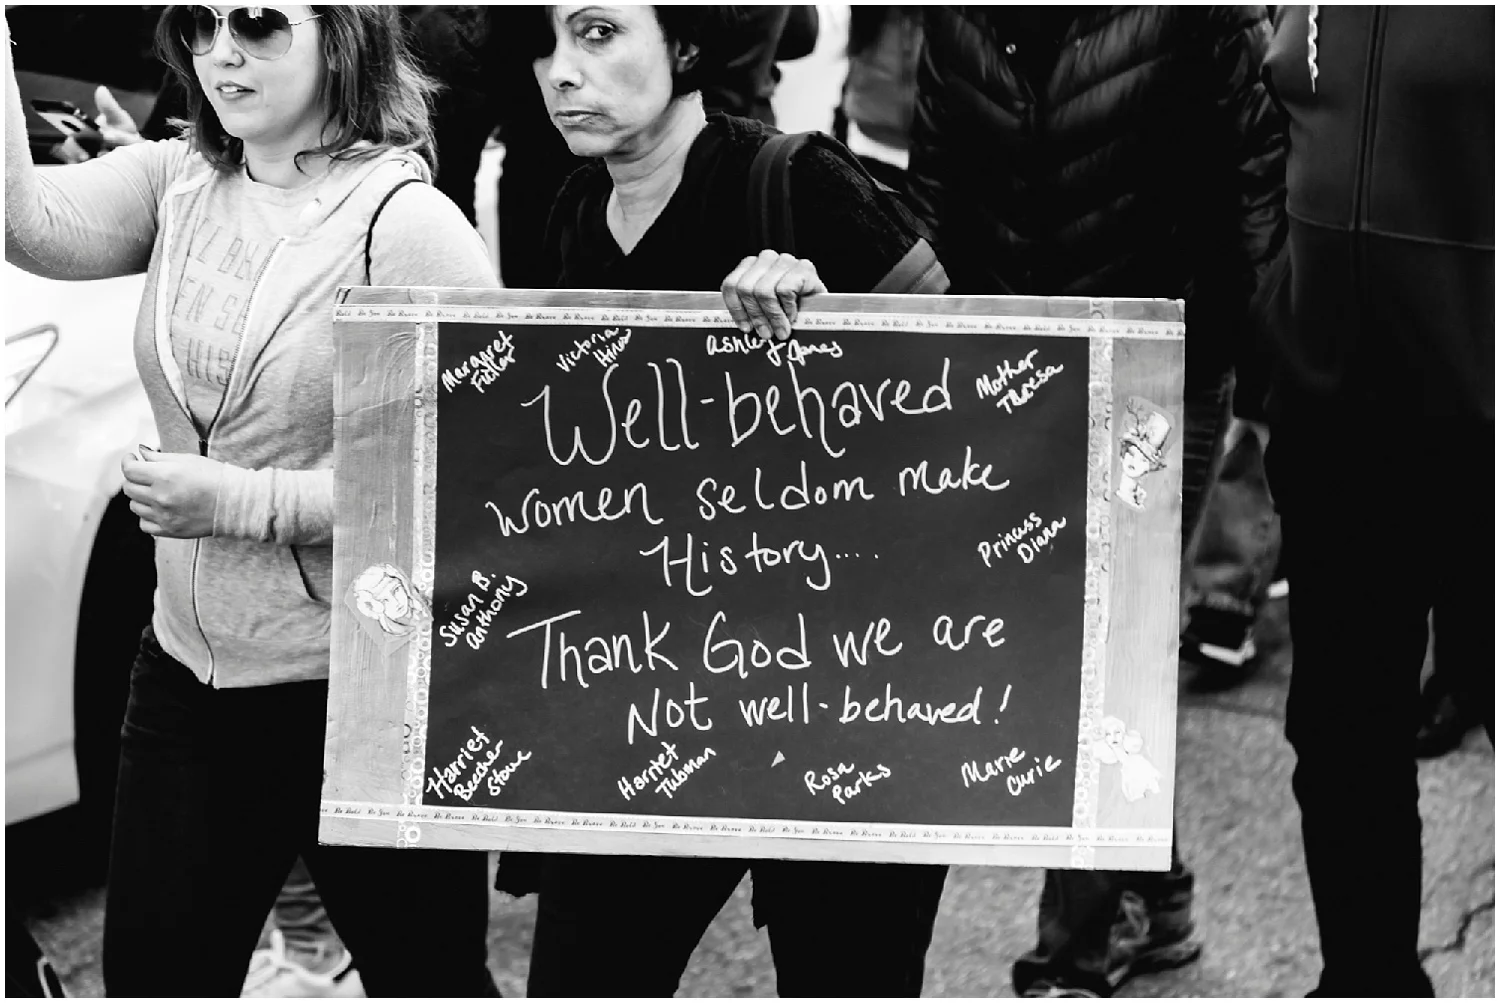 Margaret
Fuller
Victoria
Ashley
Jones
Mother
Theresa
Well-behaved
women seldom make
History....
Princess
Diana
Susan B.
Anthony
Thank God we are
Not well-behaved!
Harriet
Beecher
Stowe
Harriet
Tubman
Rosa
Parks
Marie
Curie